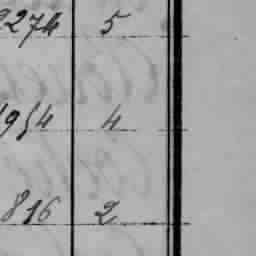 2274 5
1954 4
816 2